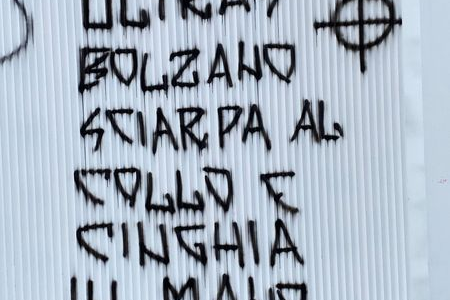 ULTRAS
BOLZANO
SCIARPA AL
COLLO E
CINGHIA
IN MANO